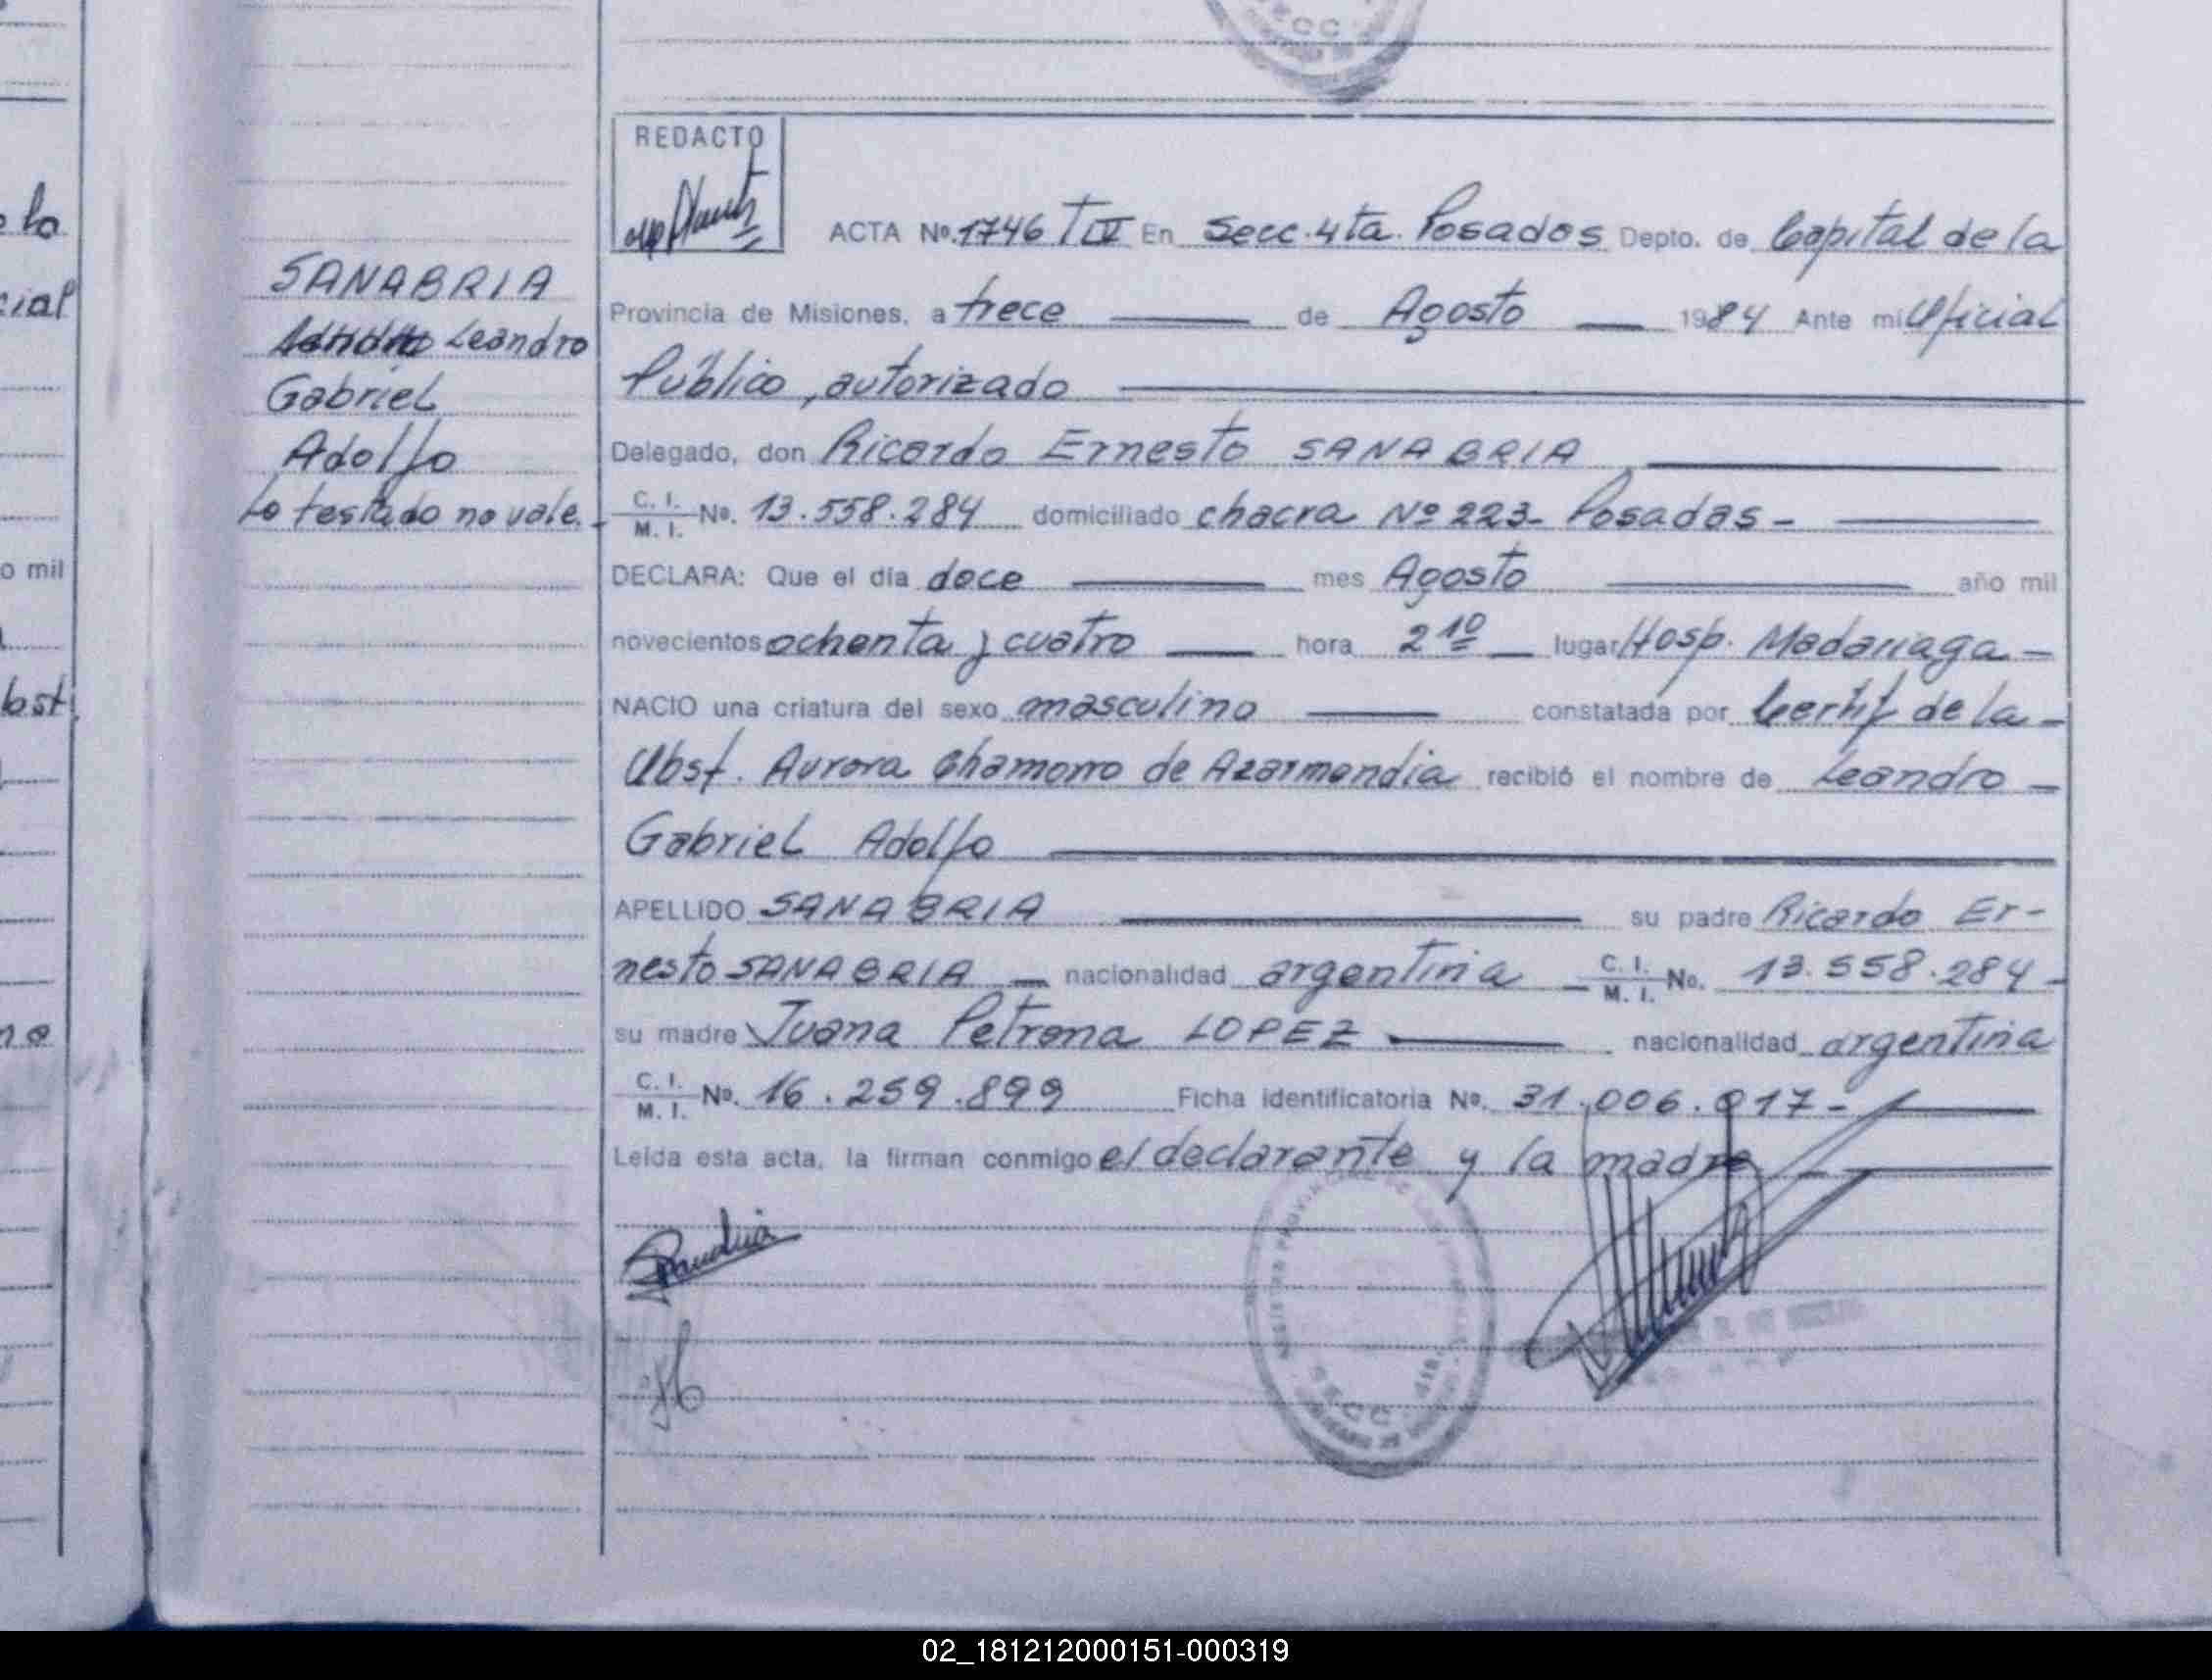 SECC
REDACTO
ACTA Nº. 1746 T IV En Secc. 4ta. Posadas Depto. de Capital de la
Provincia de Misiones, a trece de Agosto 1984 Ante mi Oficial
Público, autorizado
Delegado, don Ricardo Ernesto SANABRIA
C. I.
M. I. Nº. 13.558.284 domiciliado chacra Nº 223- Posadas -
DECLARA: Que el día doce mes Agosto año mil
novecientos ochenta y cuatro hora 2 10 lugar Hosp. Madariaga -
NACIO una criatura del sexo masculino constatada por Certif de la -
Obst. Aurora Chamorro de Azarmendia recibió el nombre de Leandro -
Gabriel Adolfo
APELLIDO SANABRIA su padre Ricardo Er-
nesto SANABRIA nacionalidad argentina C. I.
M. I. No. 13.558.284 -
su madre Juana Petrona LOPEZ nacionalidad argentina
C. I.
M. I. Nº. 16.259.899 Ficha identificatoria Nº. 31.006.017-
Leída esta acta, la firman conmigo el declarante y la madre
SANABRIA
Leandro
Gabriel
Adolfo
Lo testado no vale.-
SECC
o mil
cial
bst.
02_181212000151-000319